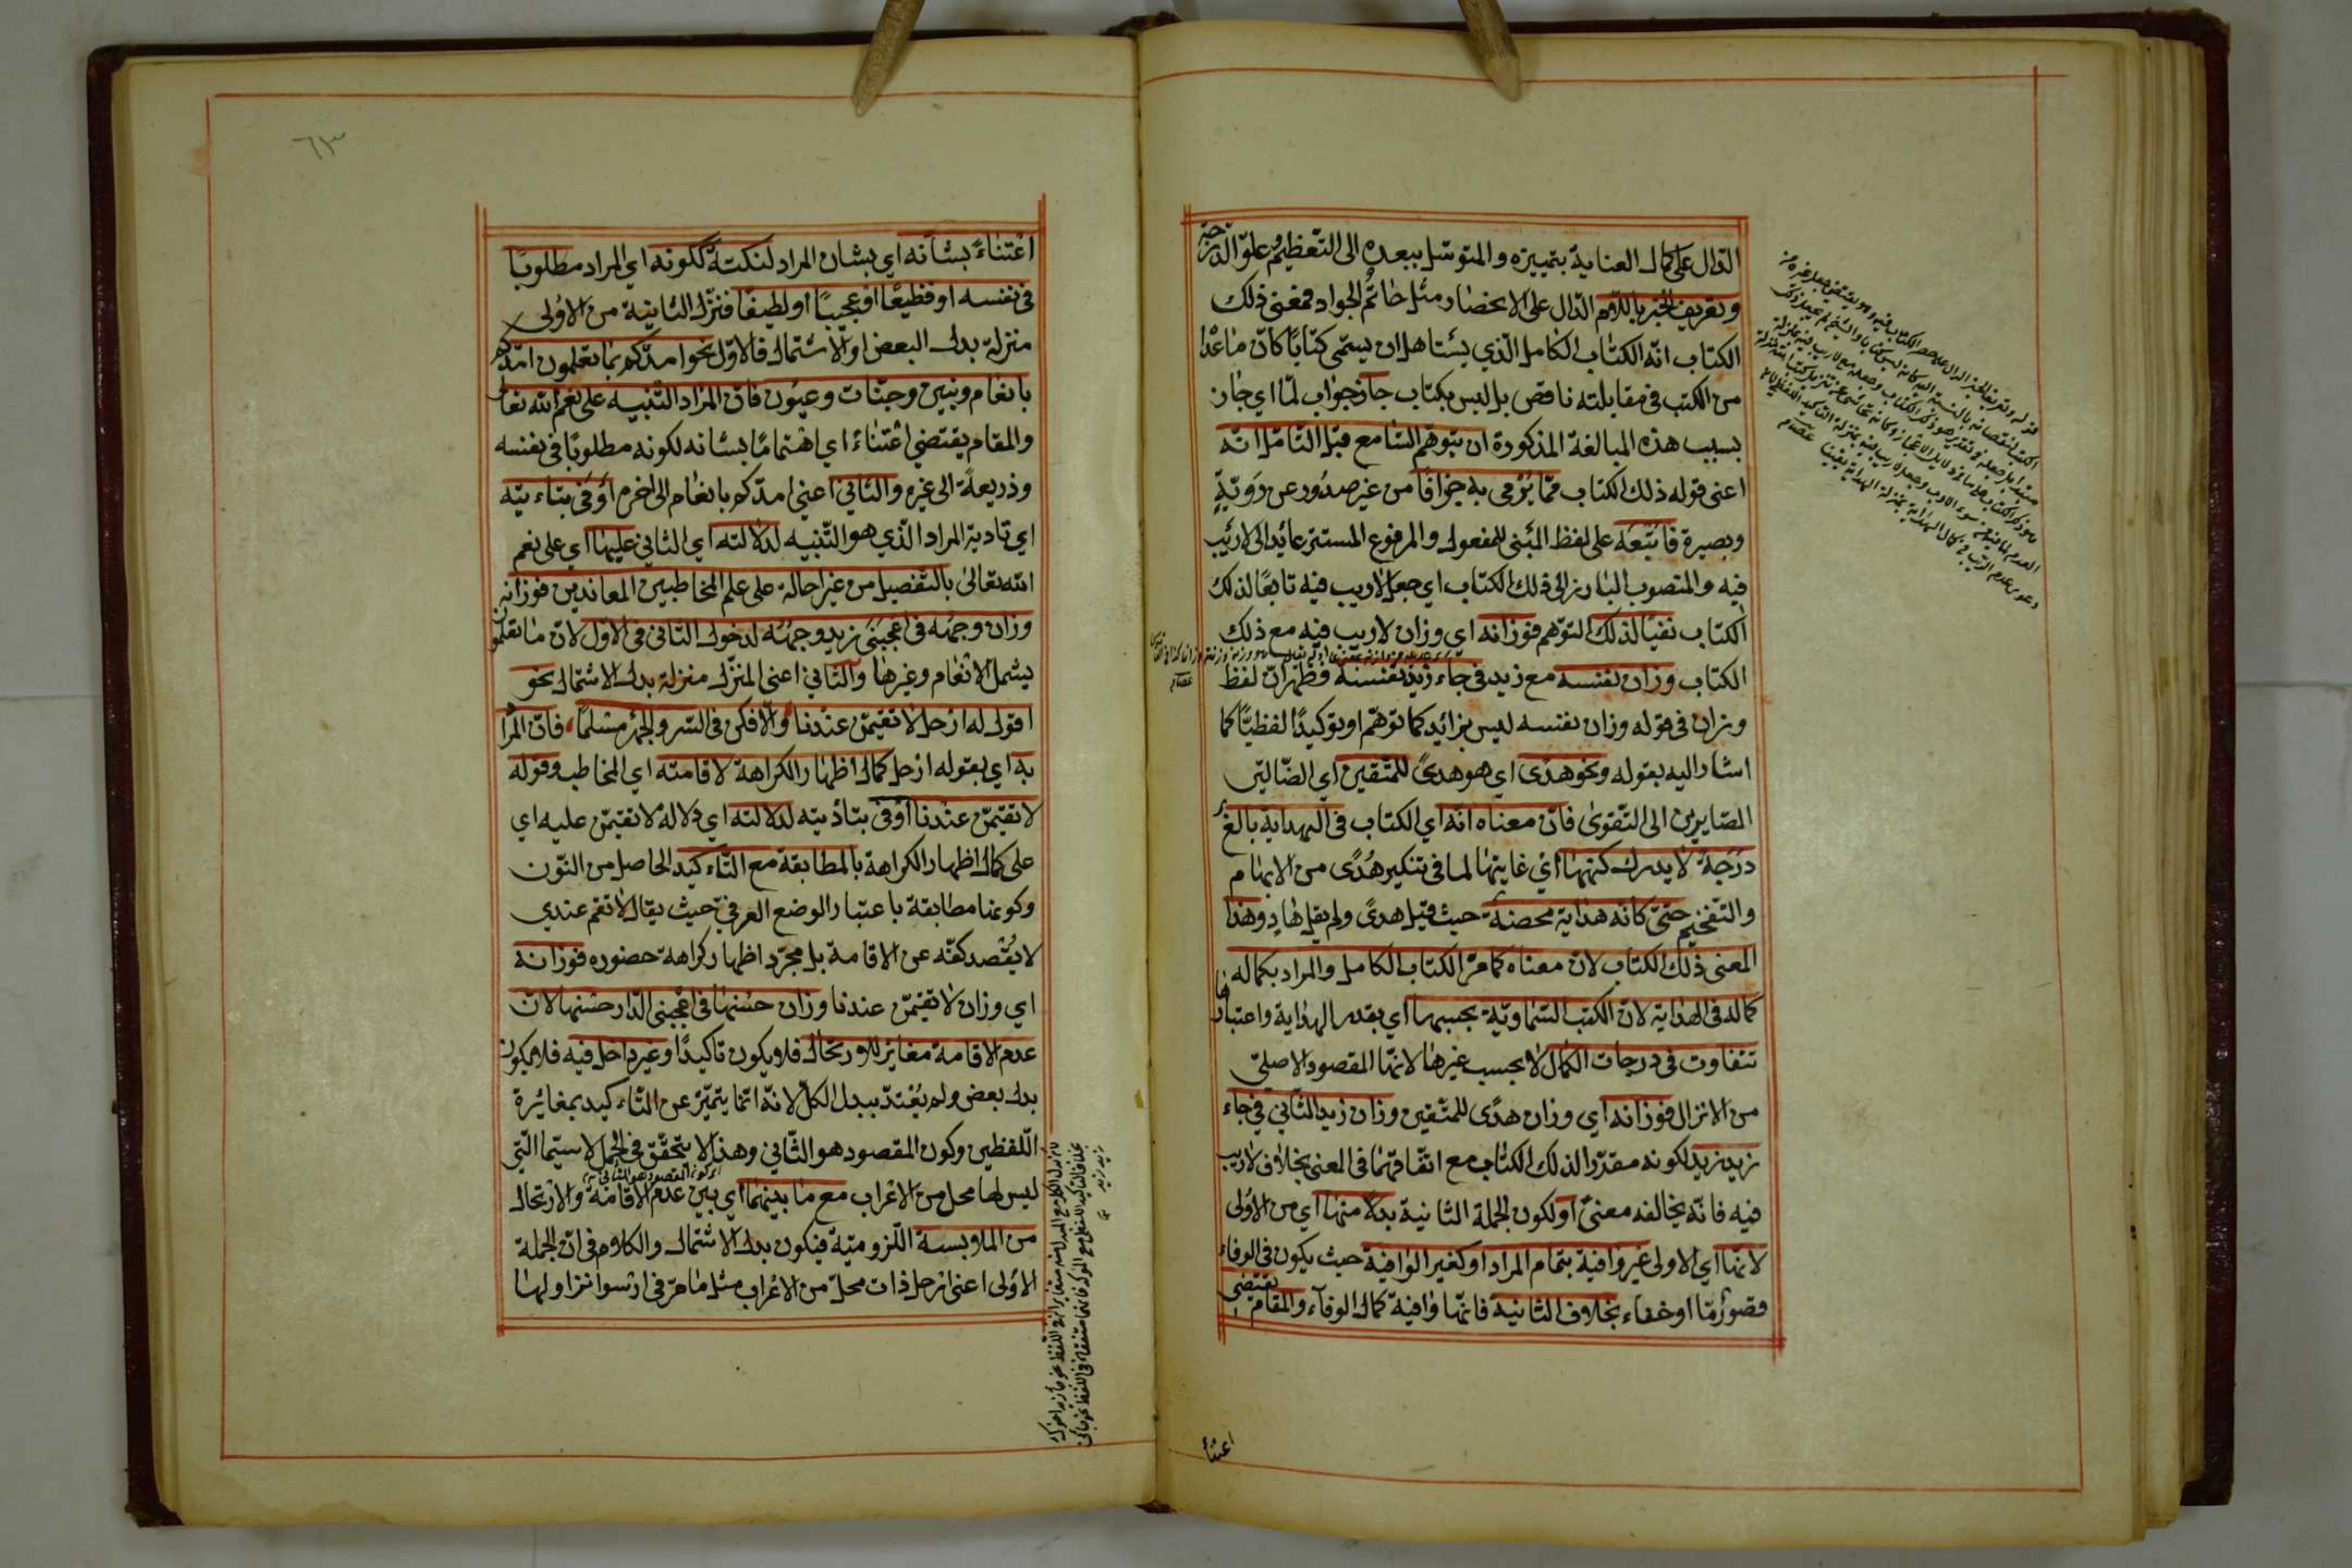 الدّال على كمال العناية بتمييزه والمتوسّل ببعده الى التّعظيم وعلوّ الدّرجة
وتعريف الخبر باللّام الدّال على الانحصار مثل حاتم الجواد فمعنى ذلك
الكتاب انّه الكتاب الكامل الّذي يستاهل ان يسمّى كتابًا كأنّ ما عداه
من الكتب في مقابلته ناقص بل ليس بكتاب جاز جواب لمّا اي جاز
بسبب هذه المبالغة المذكورة ان يتوهّم السّامع قبل التّأمّل انّه
اعنى قوله ذلك الكتاب ممّا يُرْمى به جزافًا من غير صدور عن رويّةٍ
وبصيرة فاتبعَه على لفظ المبنى للمفعول والمرفوع المستتر عائد الى لاريب
فيه والمنصوب البارز الى ذلك الكتاب اي جعل لاريب فيه تابعًا لذلك
الكتاب نفيًا لذلك التوّهم فوزانه اي وزان لاريب فيه مع ذلك
الكتاب وزان نفسه مع زيد في جاء زيد نفسه فظهر انّ لفظ
وزان في قوله وزان نفسه ليس بزائد كما توهّم او توكيدًا لفظيًّا كما
اشار اليه بقوله ونحو هدًى اي هو هدىً للمتّقين اي الضّالّين
الصّايرين الى التّقوى فانّ معناه انّه اي الكتاب في الهداية بالغٌ
درَجةً لا يدرك كنهها اي غايتها لما في تنكير هُدًى من الابهام
والتّفخيم حتّى كانّه هداية محضة حيث قيل هدىً ولم يقل هادٍ وهذا
المعنى ذلك الكتاب لانّ معناه كما مرّ الكتاب الكامل والمراد بكماله
كماله في الهداية لانّ الكتب السّماويّة بحسبها اي بقدر الهداية واعتبارها
تتفاوت في درجات الكمال لا بحسب غيرها لانّها المقصود الاصلىّ
من الانزال فوزانه اي وزان هدًى للمتّقين وزان زيد الثّاني في جاء
زيد زيد لكونه مقرّرا لذلك الكتاب مع اتّفاقهما في المعنى بخلاف لاريب
فيه فانّه يخالفه معنىً او لكون الجملة الثانية بدلًا منها اي من الاولى
لانّها اي الاولى غير وافية بتمام المراد او كغير الوافية حيث يكون في الوفاء
قصورٌ مّا او خفاء بخلاف الثانية فانّها وافية كمال الوفاء والمقام يقتضى
اعتناءً
٦٣
اعتناءً بشأنه اي بشان المراد لنكتة ككونه اي المراد مطلوبًا
في نفسه او فظيعًا او عجيبًا او لطيفًا فنزّل الثانية من الاولى
منزلة بدل البعض او الاشتمال فالاوّل نحو امدّكم بما تعلمون امدّكم
بانعام وبنين وجنّات وعيون فانّ المراد التّنبيه على نعم الله تعالى
والمقام يقتضي اعتناءً اي اهتمامًا بشانه لكونه مطلوبًا في نفسه
وذريعةً الى غيره والثّاني اعني امدّكم بانعام الى اخره اوفى بتاديته
اي تادية المراد الّذي هو التّنبيه لدلالته اي الثاني عليها اي على نعم
الله تعالى بالتّفصيل من غير احالة على علم المخاطبين المعاندين فوزانه
وزان وجهُه في اعجبنى زيد وجهُه لدخول الثّاني في الاوّل لانّ ما تعلمون
يشمل الانعام وغيرها والثّاني اعني المنزّل منزلة بدل الاشتمال نحو
اقول له ارحل لا تقيمنّ عندنا والّا فكن في السّر والجهر مسلمًا، فانّ المراد
به اي بقوله ارحل كمال اظهار الكراهة لاقامته اي المخاطب وقوله
لا تقيمنّ عندنا اوفى بتأديته لدلالته اي دلالة لا تقيمنّ عليه اي
على كمال اظهار الكراهة بالمطابقة مع التّاكيد الحاصل من النّون
وكونها مطابقة باعتبار الوضع العرفيّ حيث يقال لا تقم عندي
لا يُقْصد كفّه عن الاقامة بل مجرّد اظهار كراهة حضوره فوزانه
اي وزان لا تقيمنّ عندنا وزان حسنها في اعجبنى الدّار حسنها لانّ
عدم الاقامة مغاير للارتحال فلا يكون تاكيدًا وغير داخل فيه فلا يكون
بدل بعض ولم يُعْتدّ ببدل الكلّ لانّه انّما يتميّز عن التّاكيد بمغايرة
اللّفظين وكون المقصود هو الثّاني وهذا لا يتحقّق في الجمل لا سيّما الّتي
ليس لها محل من الاعراب مع ما بينهما اي بين عدم الاقامة والارتحال
من الملابسة اللّزوميّة فيكون بدل الاشتمال والكلام في انّ الجملة
الاولى اعني ارحل ذات محلّ من الاعراب مثل ما مرّ في ارسوا نزاولها